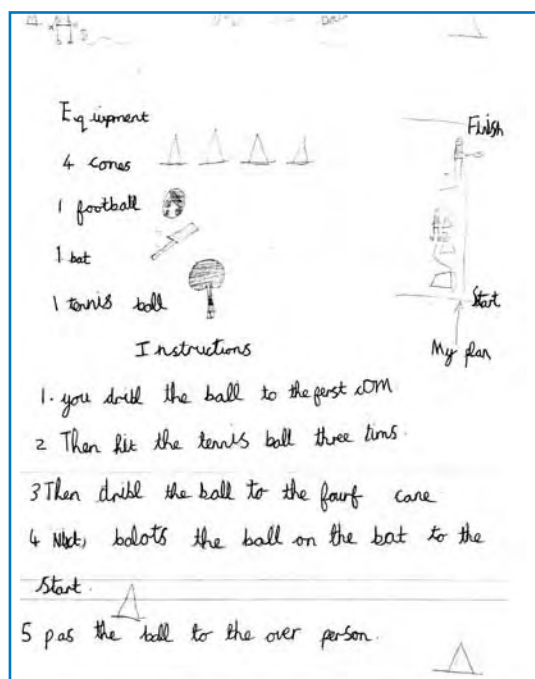 Equipment
4 cones
1 football
1 bat
1 tennis ball
Finish
Start
My plan
Instructions
1. you dribl the ball to the ferst
2 Then hit the tennis ball three tims.
3 Then dribl the ball to the fourf cane
4 Next, balots the ball on the bat to the
Start.
5 pas the ball to the over person.